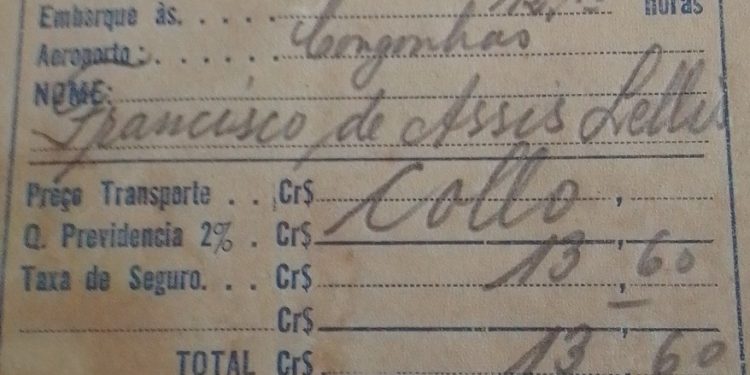 Embarque às. . . . . 12, horas
Aeroporto: . . . . . . Congonhas
NOME:
Francisco de Assis Lellis
Preço Transporte . . Cr$ Collo ,
Q. Previdencia 2% . Cr$ ,
Taxa de Seguro. . . Cr$ 13 , 60
Cr$
TOTAL Cr$ 13 60